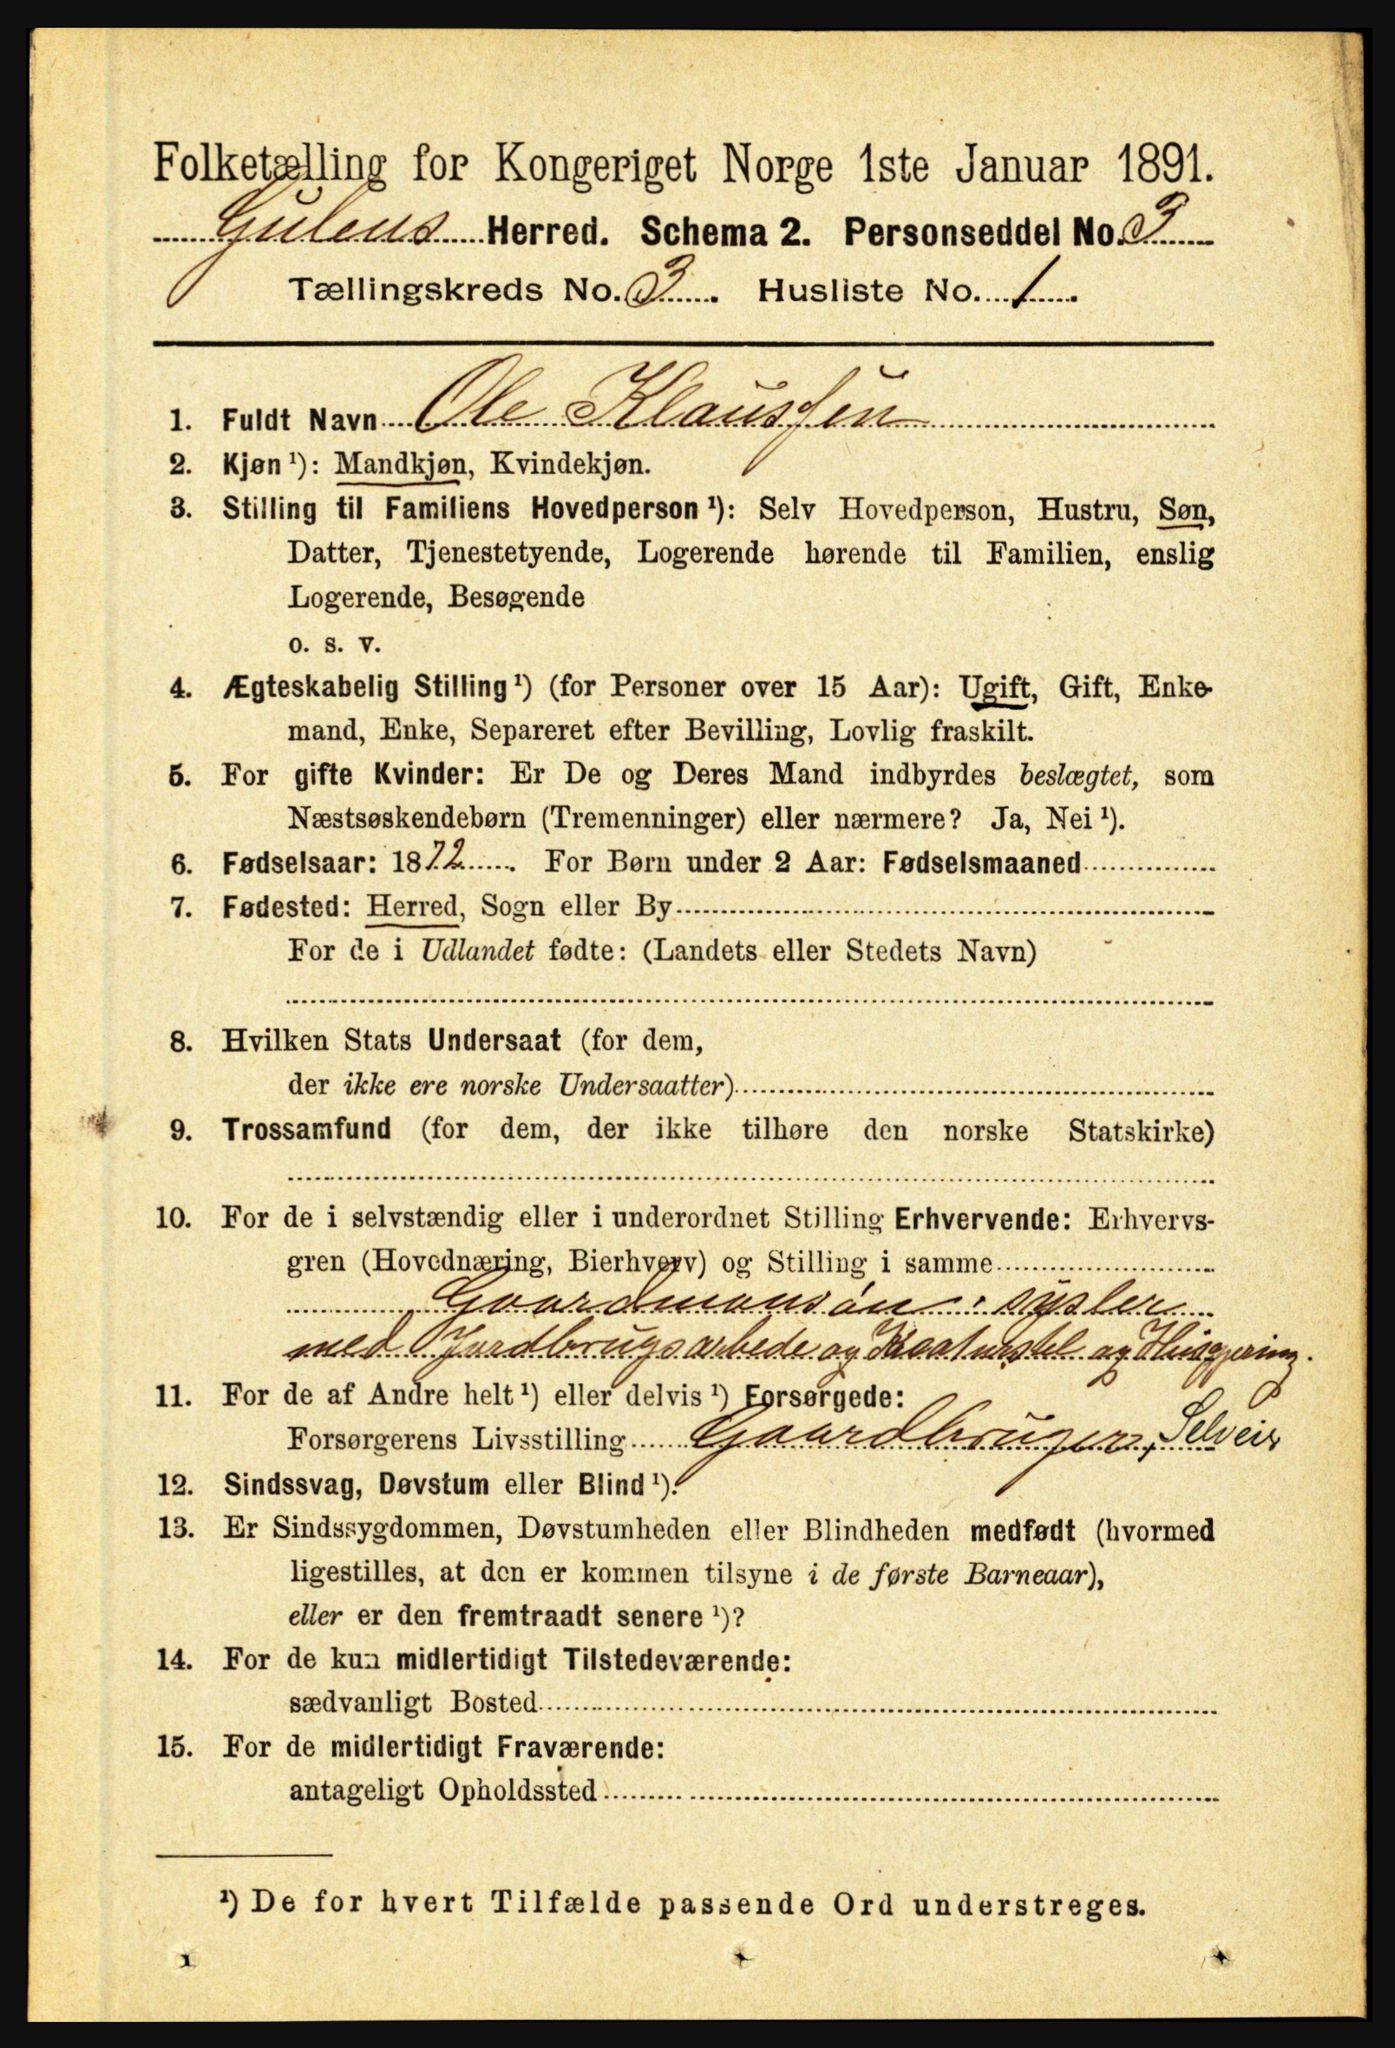 Folketælling for Kongeriget Norge 1ste Januar 1891.
Gulens Herred. Schema 2. Personseddel No. 3
Tællingskreds No. 3. Husliste No. 1.
1. Fuldt Navn Ole Klausen
2. Kjøn ¹): Mandkjøn, Kvindekjøn.
3. Stilling til Familiens Hovedperson ¹): Selv Hovedperson, Hustru, Søn,
Datter, Tjenestetyende, Logerende hørende til Familien, enslig
Logerende, Besøgende
o. s. v.
4. Ægteskabelig Stilling ¹) (for Personer over 15 Aar): Ugift, Gift, Enke-
mand, Enke, Separeret efter Bevilling, Lovlig fraskilt.
5. For gifte Kvinder: Er De og Deres Mand indbyrdes beslægtet, som
Næstsøskendebørn (Tremenninger) eller nærmere? Ja, Nei ¹).
6. Fødselsaar: 1872. For Børn under 2 Aar: Fødselsmaaned
7. Fødested: Herred, Sogn eller By
For de i Udlandet fødte: (Landets eller Stedets Navn)
8. Hvilken Stats Undersaat (for dem,
der ikke ere norske Undersaatter)
9. Trossamfund (for dem, der ikke tilhøre den norske Statskirke)
10. For de i selvstændig eller i underordnet Stilling Erhvervende: Erhvervs-
gren (Hovednæring, Bierhverv) og Stilling i samme
Gaardmansøn, sysler
med Jordbrugsarbede og Kreaturstel og Husgjering.
11. For de af Andre helt ¹) eller delvis ¹) Forsørgede:
Forsørgerens Livsstilling Gaardbruger, Selveir
12. Sindssvag, Døvstum eller Blind ¹).
13. Er Sindssygdommen, Døvstumheden eller Blindheden medfødt (hvormed
ligestilles, at den er kommen tilsyne i de første Barneaar),
eller er den fremtraadt senere ¹)?
14. For de kun midlertidigt Tilstedeværende:
sædvanligt Bosted
15. For de midlertidigt Fraværende:
antageligt Opholdssted
¹) De for hvert Tilfælde passende Ord understreges.